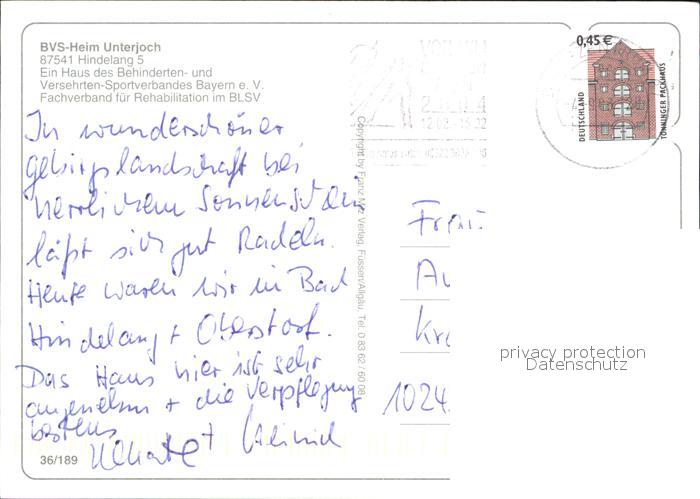 BVS-Heim Unterjoch
87541 Hindelang 5
Ein Haus des Behinderten- und
Versehrten-Sportverbandes Bayern e. V.
Fachverband für Rehabilitation im BLSV
0,45 €
DEUTSCHLAND
TÖNNINGER PACKHAUS
In wunderschöner
Gebirgslandschaft bei
herrlichem Sonnenschein
läßt sich gut Radeln.
Heute waren wir in Bad
Hindelang + Oberstdorf.
Das Haus hier ist sehr
angenehm + die Verpflegung
bestens
Renate +
36/189
Copyright by Franz Milz Verlag, Füssen/Allgäu, Tel. 0 83 62 / 60 08
Frau
1024
privacy protection
Datenschutz